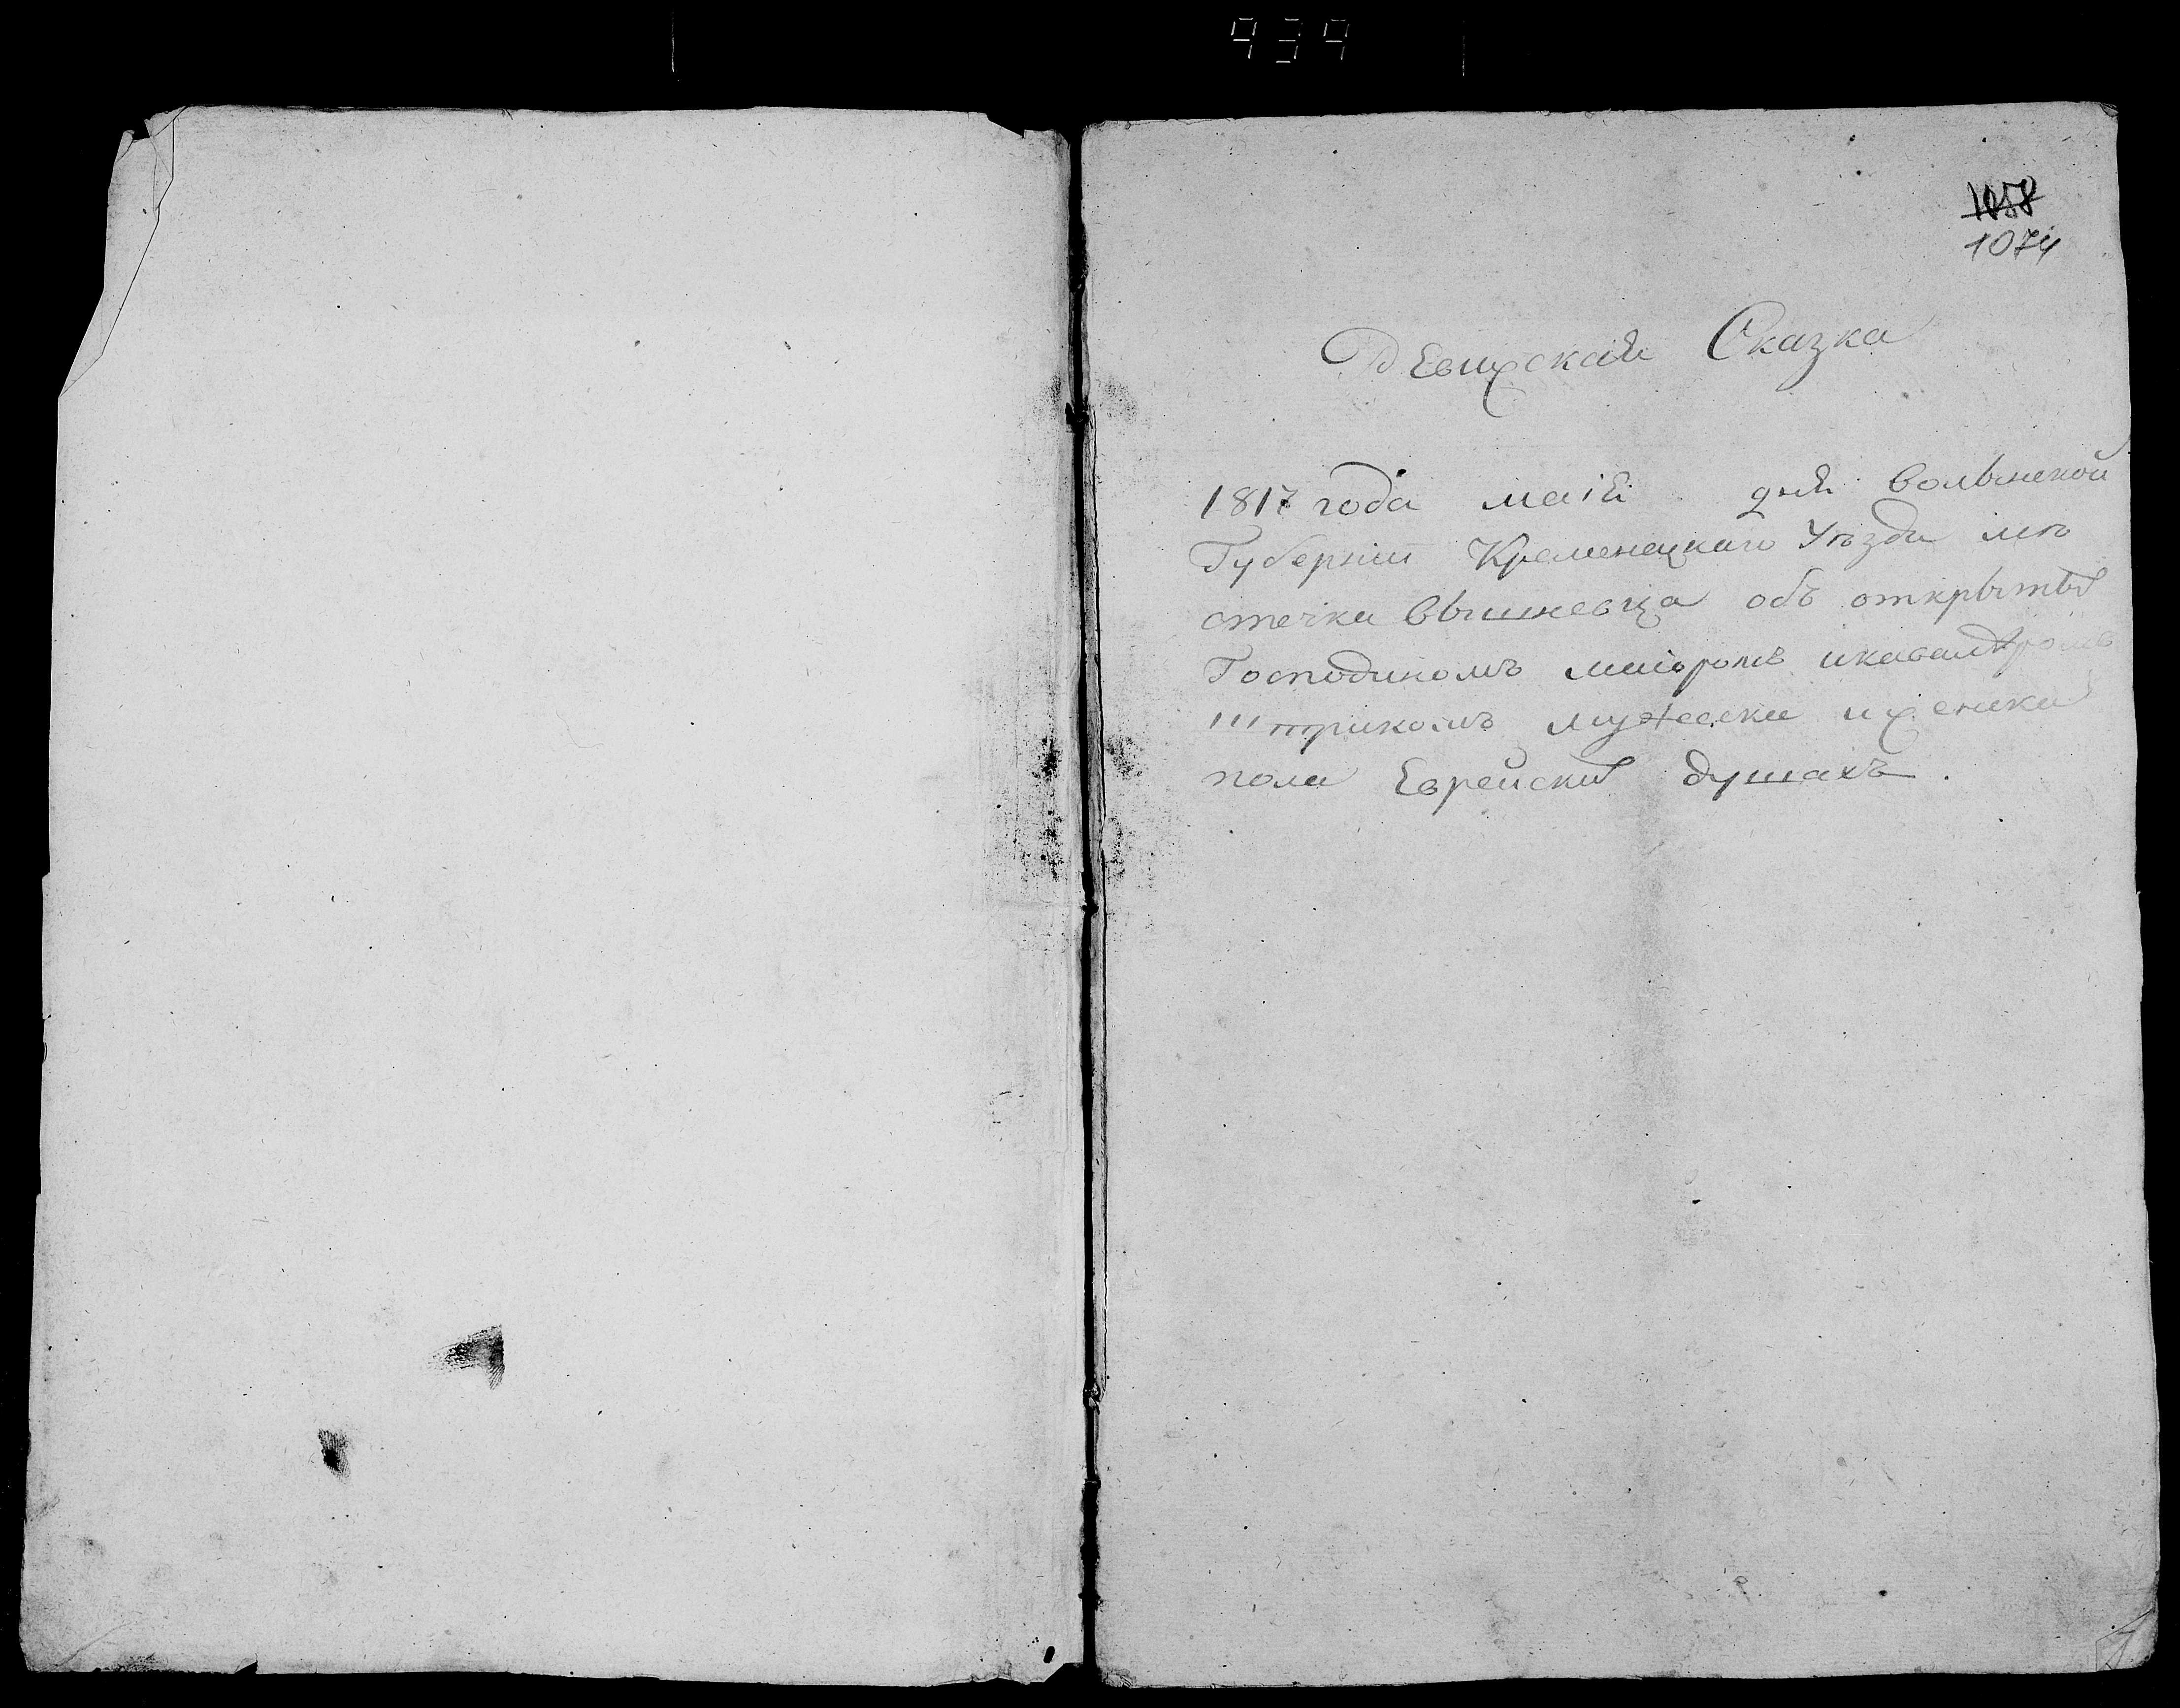 939
1058
1074
Ревизская Сказка
1817 года маія дня волынской
Губерніи Кременецкаго Уѣзда мѣ
стечка вышневца объ открытых
Господиномъ маіоромъ икавалеромъ
Штрикомъ мужеска иженска
пола Еврейских душахъ.